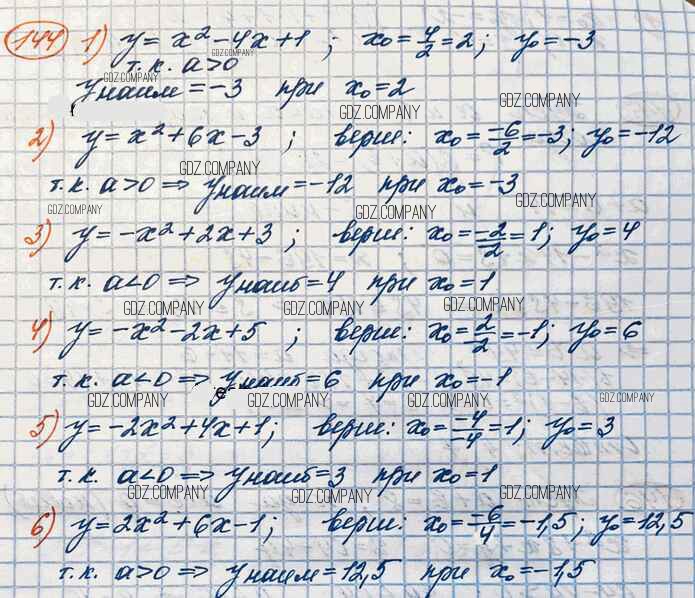 144 1) y = x² - 4x + 1 ; x₀ = 4/2 = 2; y₀ = -3
GDZ.COMPANY
т.к. a > 0
GDZ.COMPANY
yнаим = -3 при x₀ = 2
GDZ.COMPANY GDZ.COMPANY
2) y = x² + 6x - 3 ; верш: x₀ = -6/2 = -3; y₀ = -12
GDZ.COMPANY
т.к. a > 0 => yнаим = -12 при x₀ = -3
GDZ.COMPANY GDZ.COMPANY GDZ.COMPANY
3) y = -x² + 2x + 3 ; верш: x₀ = -2/-2 = 1; y₀ = 4
т.к. a < 0 => yнаиб = 4 при x₀ = 1
GDZ.COMPANY GDZ.COMPANY GDZ.COMPANY
4) y = -x² - 2x + 5 ; верш: x₀ = 2/-2 = -1; y₀ = 6
т.к. a < 0 => yнаиб = 6 при x₀ = -1
GDZ.COMPANY GDZ.COMPANY GDZ.COMPANY GDZ.COMPANY
5) y = -2x² + 4x + 1; верш: x₀ = -4/-4 = 1; y₀ = 3
т.к. a < 0 => yнаиб = 3 при x₀ = 1
GDZ.COMPANY GDZ.COMPANY GDZ.COMPANY
6) y = 2x² + 6x - 1; верш: x₀ = -6/4 = -1,5; y₀ = 12,5
т.к. a > 0 => yнаим = 12,5 при x₀ = -1,5